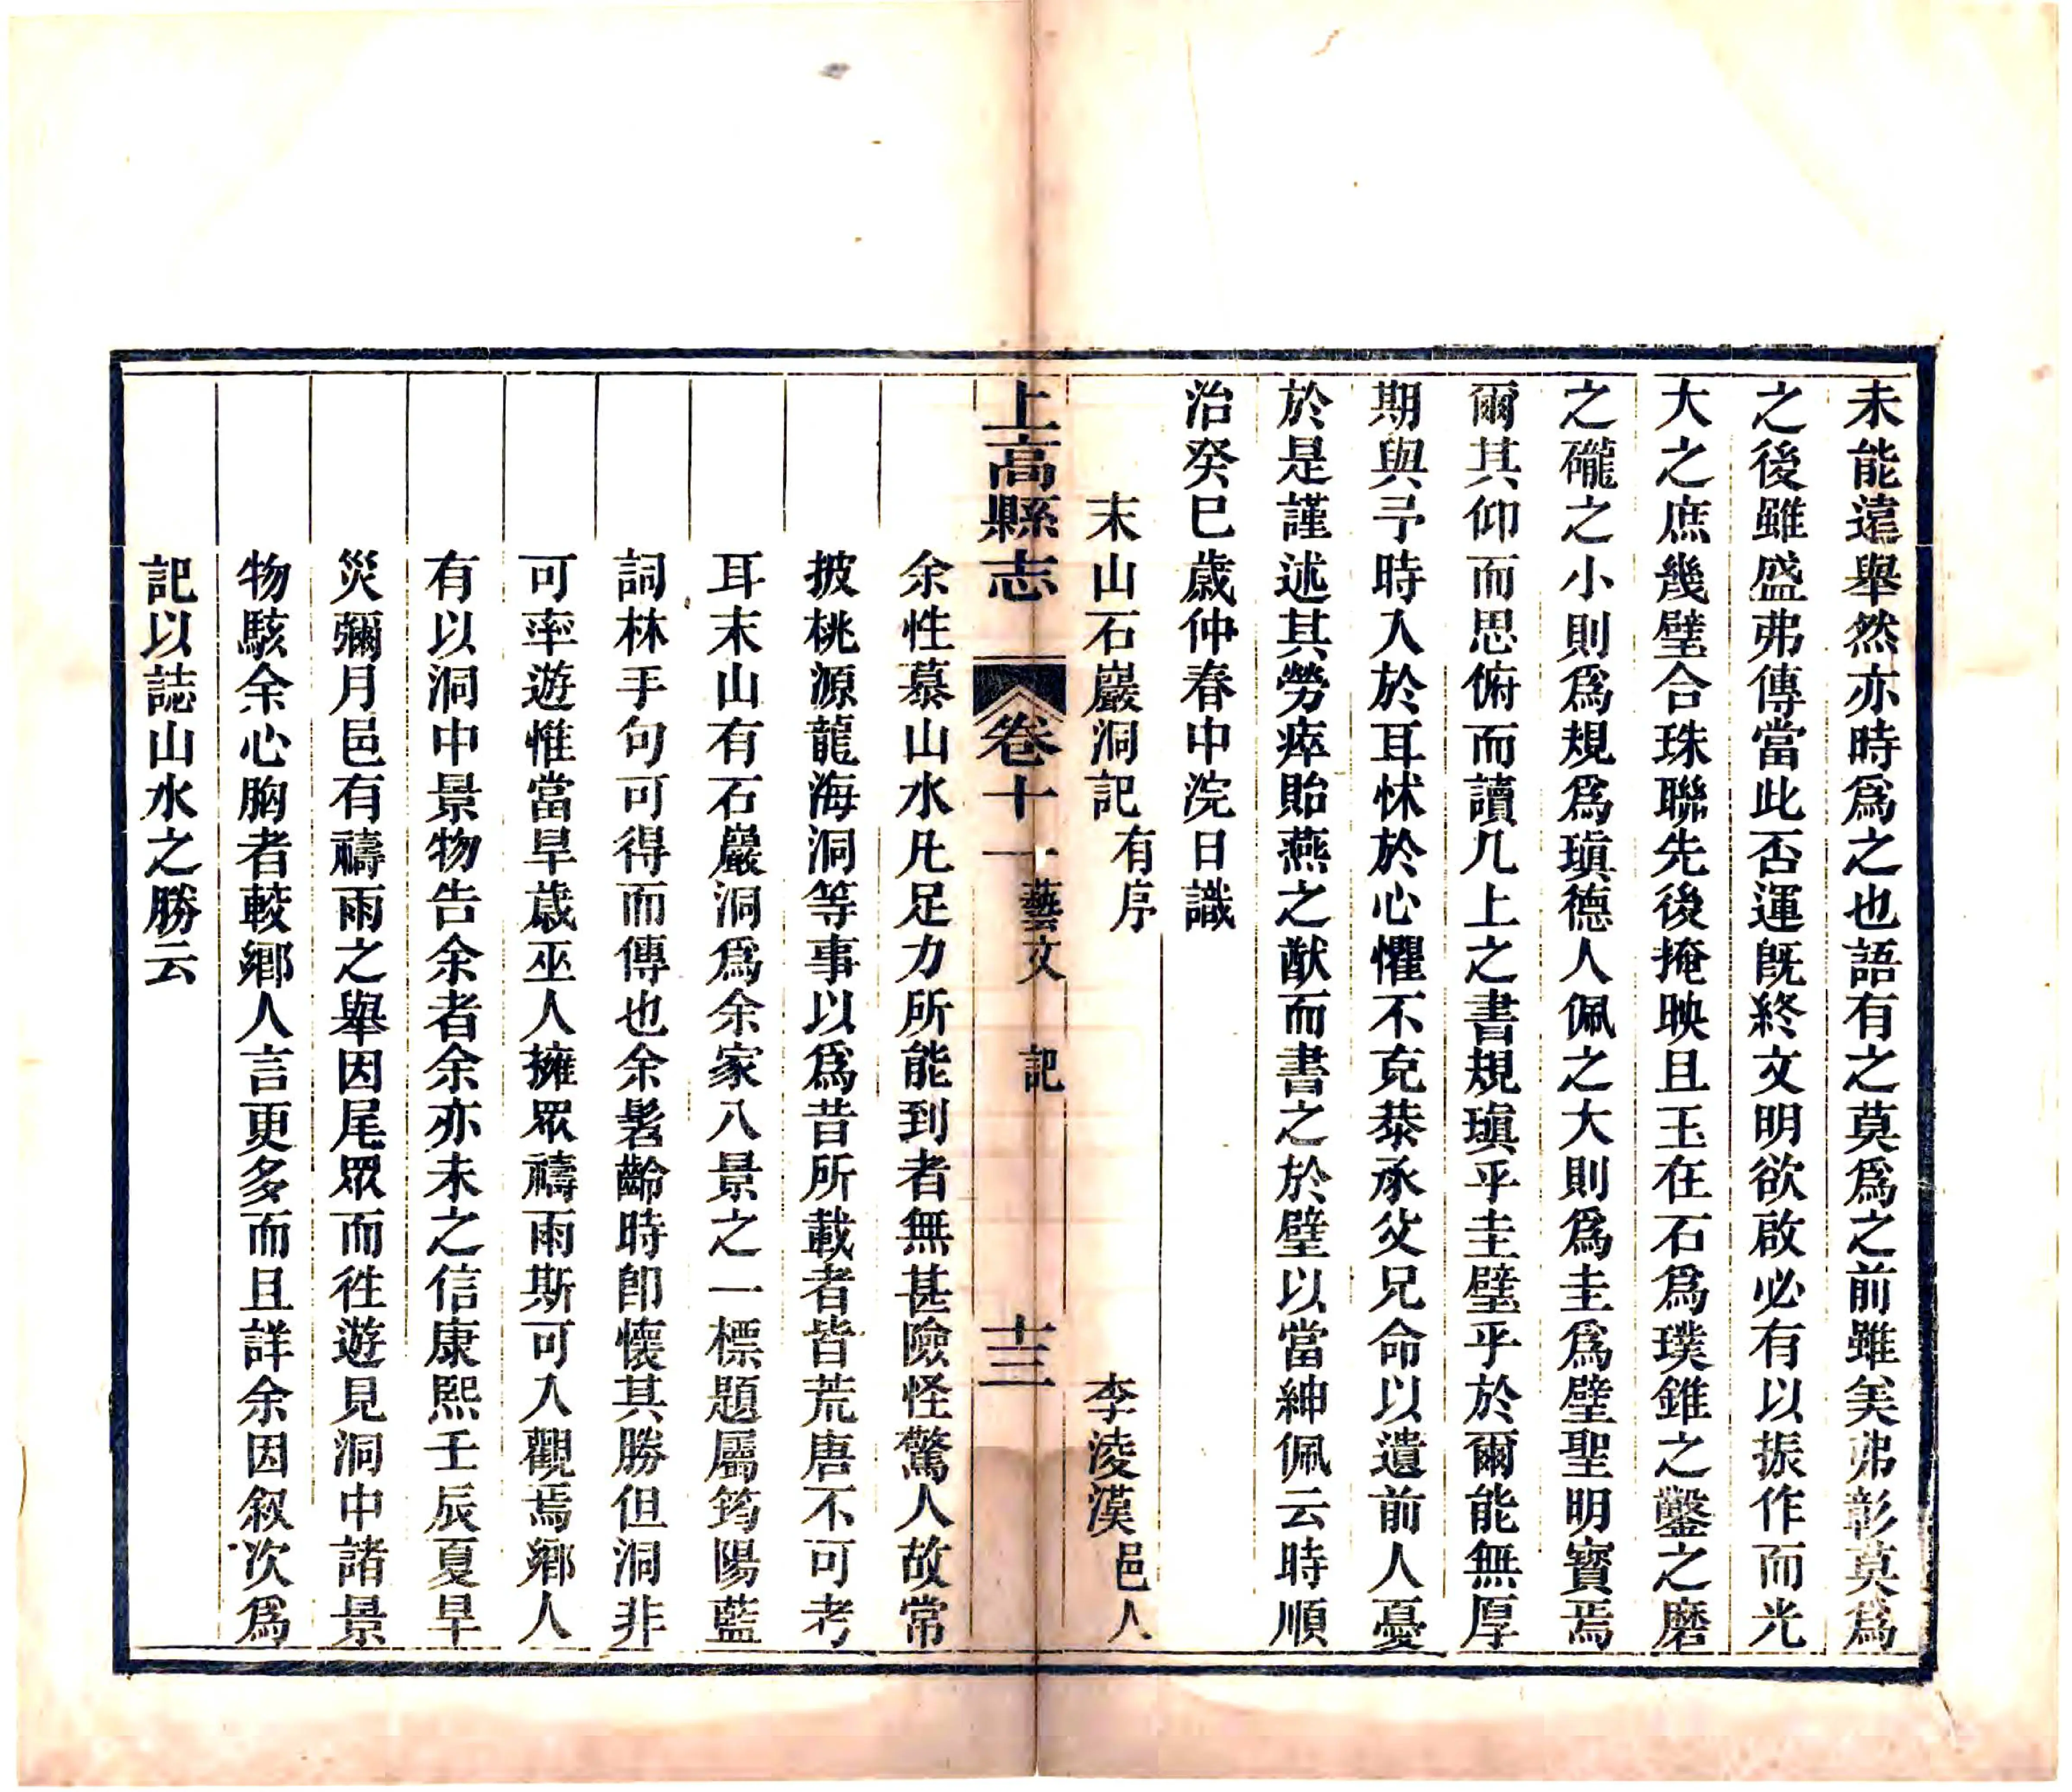 未能遠舉然亦時爲之也語有之莫爲之前雖美弗彰莫爲
之後雖盛弗傳當此否運旣終文明欲啟必有以振作而光
大之庶幾璧合珠聯先後掩映且玉在石爲璞錐之鑿之磨
之礲之小則爲規爲瑱德人佩之大則爲圭爲璧聖明寶焉
爾其仰而思俯而讀几上之書規瑱乎圭璧乎於爾能無厚
期與予時入於耳怵於心懼不克恭承父兄命以遺前人憂
於是謹述其勞瘁貽燕之猷而書之於壁以當紳佩云時順
治癸巳歲仲春中浣日識
末山石巖洞記有序 李淩漢邑人
上高縣志 卷十一藝文 記 十三
余性慕山水凡足力所能到者無甚險怪驚人故常
披桃源龍海洞等事以爲昔所載者皆荒唐不可考
耳末山有石巖洞爲余家八景之一標題屬筠陽藍
詞林手句可得而傳也余髫齡時卽懷其勝但洞非
可率遊惟當旱歲巫人擁眾禱雨斯可入觀焉鄉人
有以洞中景物告余者余亦未之信康熙壬辰夏旱
災彌月邑有禱雨之舉因尾眾而徃遊見洞中諸景
物駭余心胸者較鄉人言更多而且詳余因叙次爲
記以誌山水之勝云